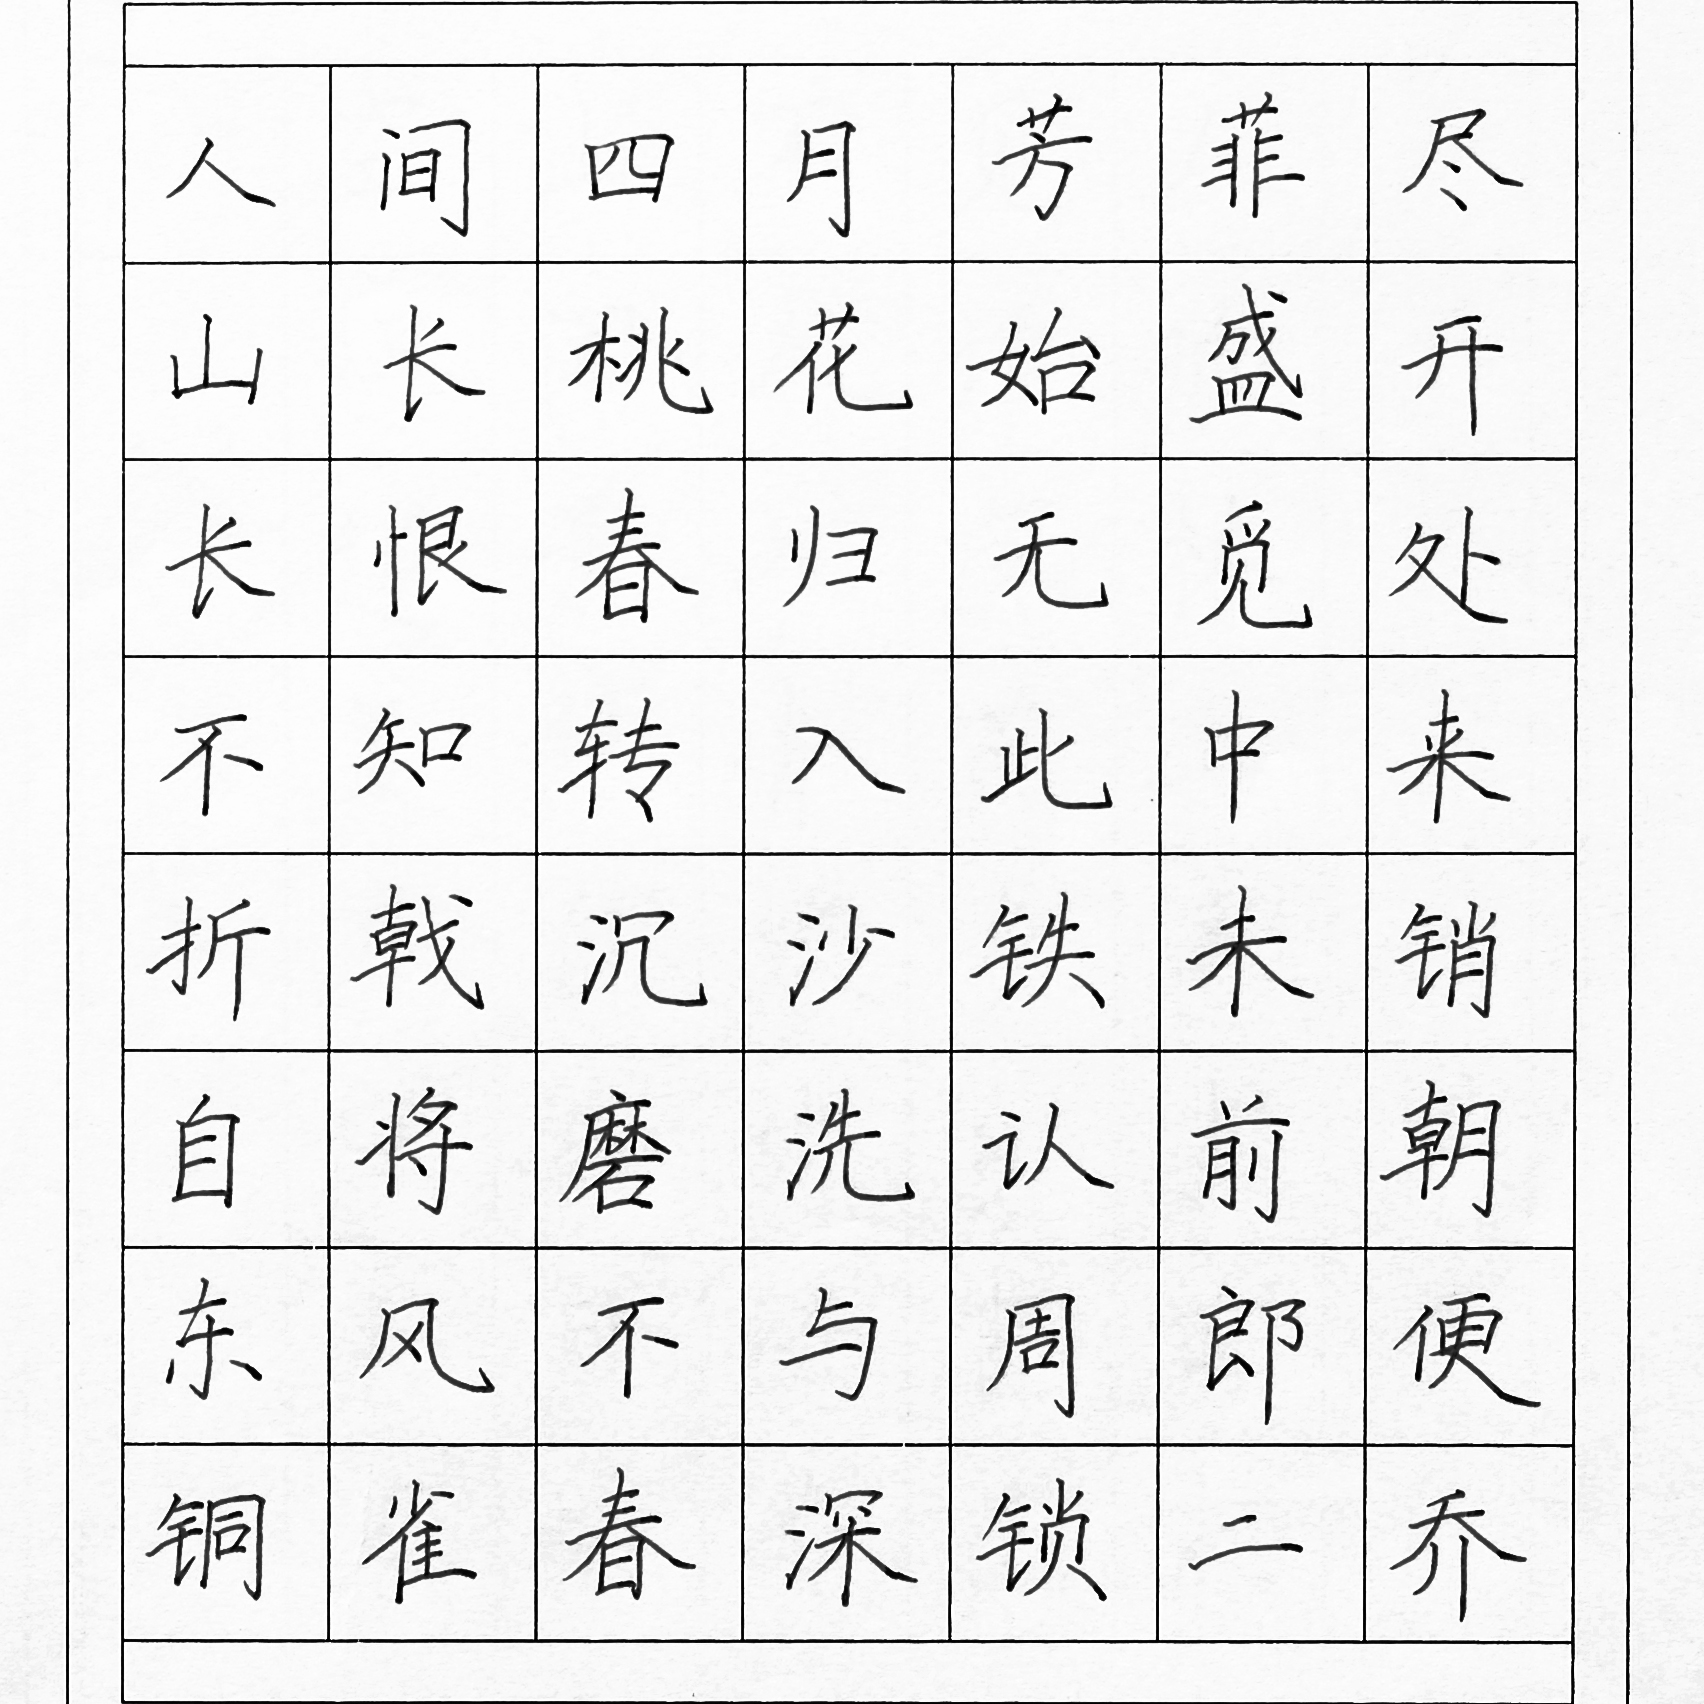 人间四月芳菲尽
山长桃花始盛开
长恨春归无觅处
不知转入此中来
折戟沉沙铁未销
自将磨洗认前朝
东风不与周郎便
铜雀春深锁二乔